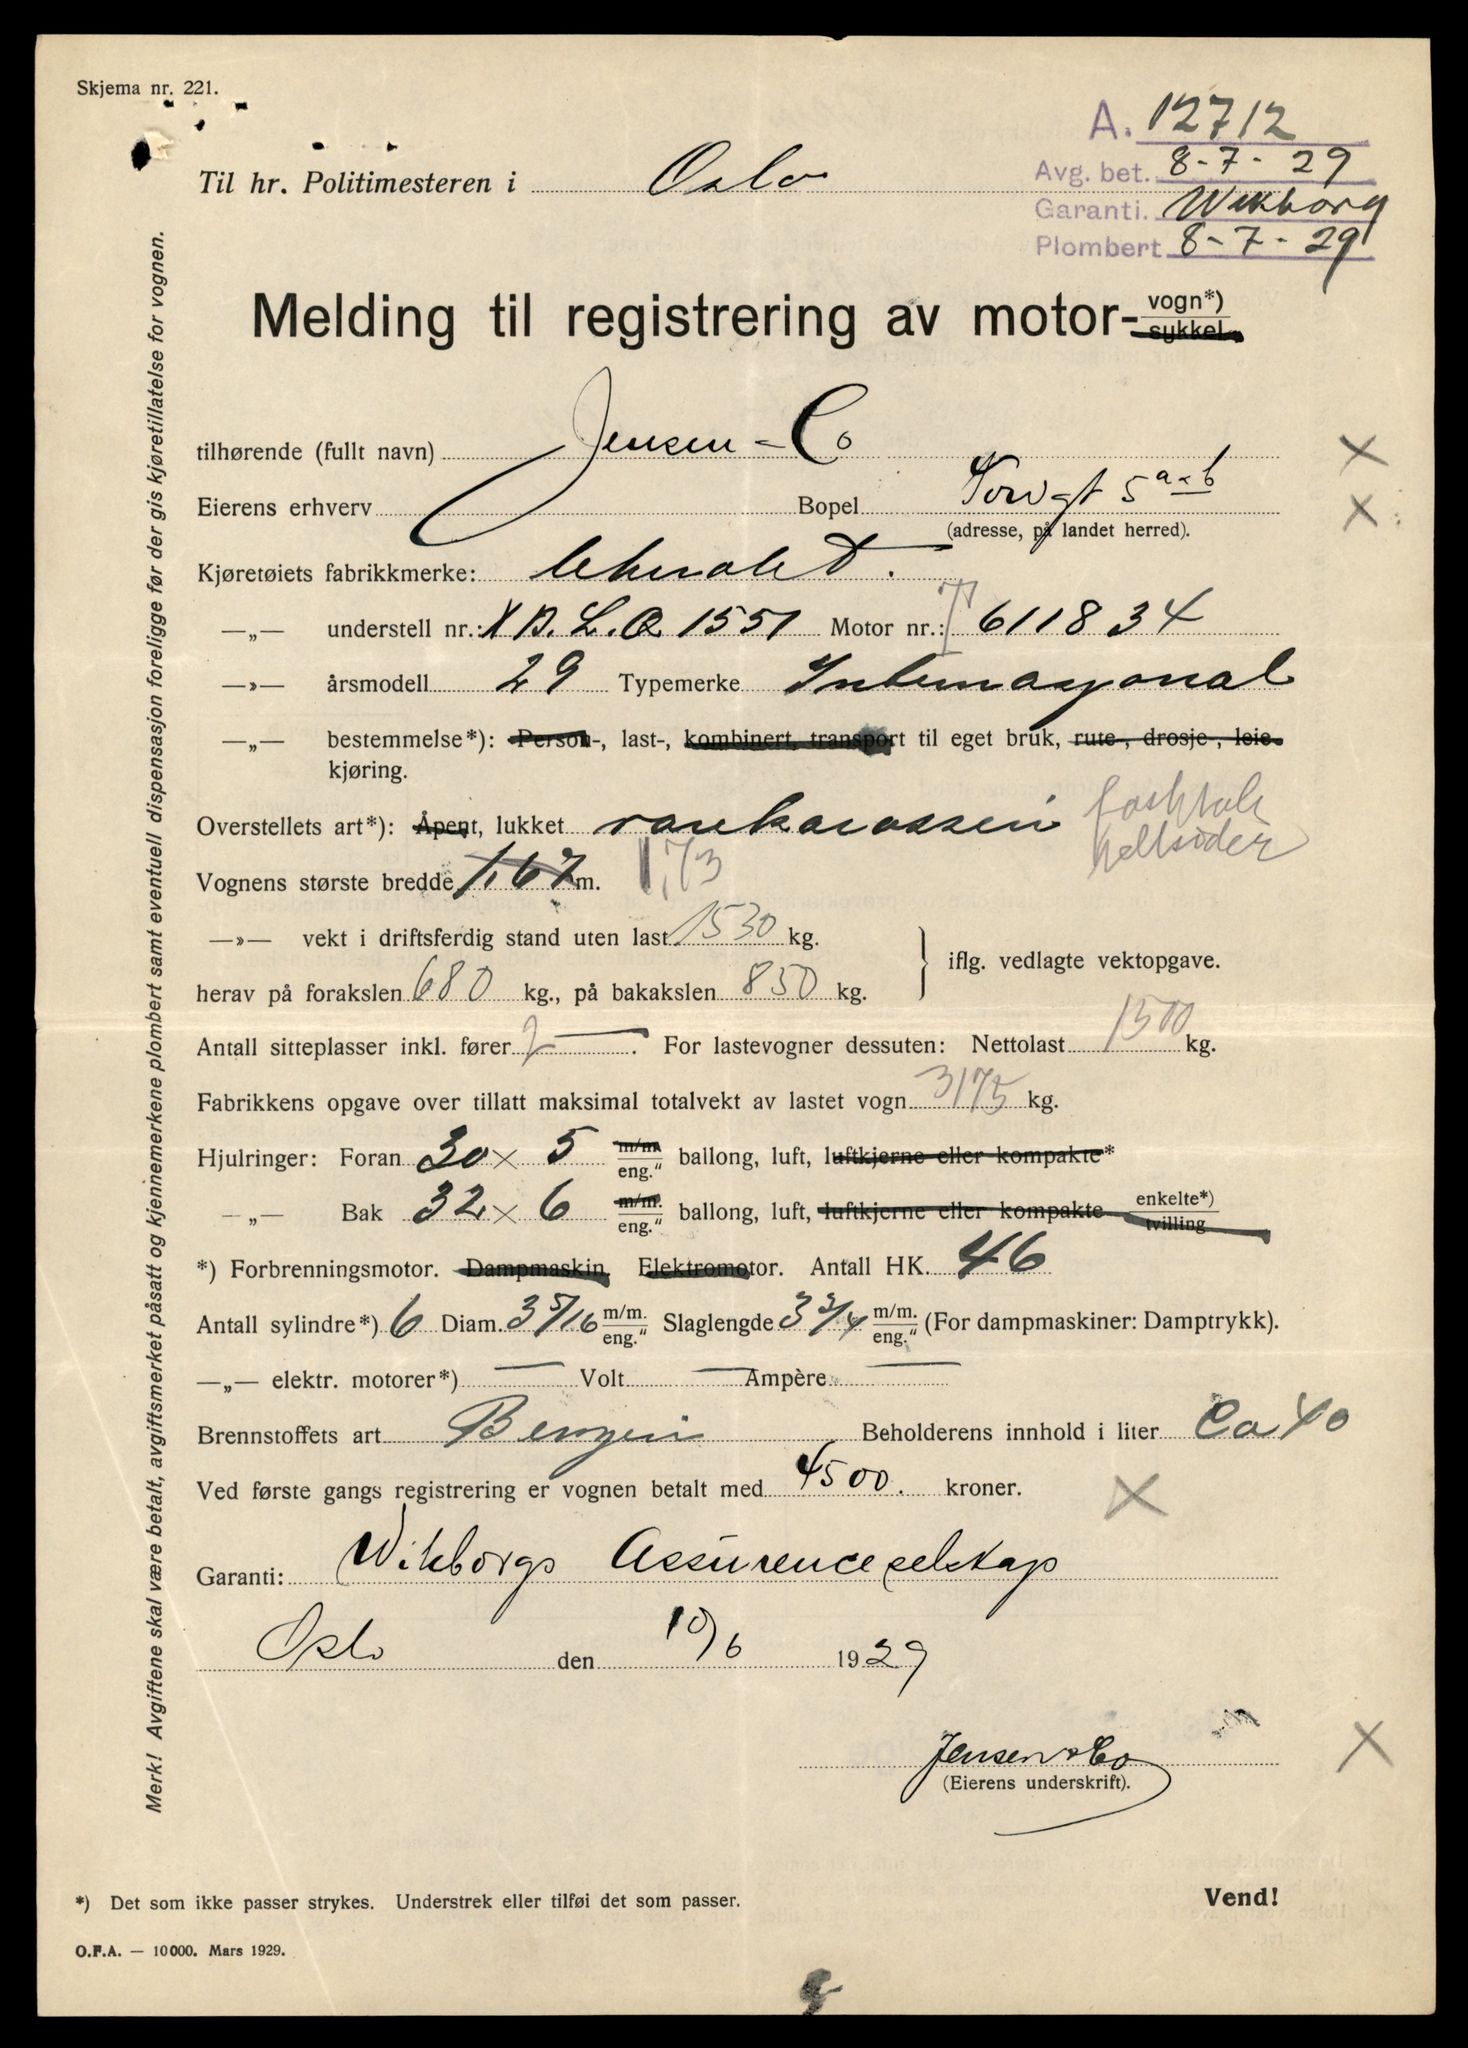 Skjema nr. 221.
A. 12712
Avg. bet. 8-7-29
Garanti. Wikborg
Plombert 8-7-29
Til hr. Politimesteren i Oslo
Melding til registrering av motor- vogn*) sykkel
tilhørende (fullt navn) Jensen - Co
Eierens erhverv Bopel Torvgt 5 a-b
(adresse, på landet herred).
Kjøretøiets fabrikkmerke: Chevrolet.
—„— understell nr.: X B. L. Q. 1551 Motor nr.: T 611834
—»— årsmodell 29 Typemerke Internasjonal
—„— bestemmelse*): Person-, last-, kombinert, transport til eget bruk, rute-, drosje-, leie-
kjøring.
Overstellets art*): Åpent, lukket varekarosseri
helsider
Vognens største bredde 1,67 m. 1,73
—»— vekt i driftsferdig stand uten last 1530 kg.
iflg. vedlagte vektopgave.
herav på forakslen 680 kg., på bakakslen 850 kg.
Antall sitteplasser inkl. fører 2 —. For lastevogner dessuten: Nettolast 1500 kg.
Fabrikkens opgave over tillatt maksimal totalvekt av lastet vogn 3175 kg.
Hjulringer: Foran 30 x 5 m/m. eng." ballong, luft, luftkjerne eller kompakte*
—„— Bak 32 x 6 m/m. eng." ballong, luft, luftkjerne eller kompakte enkelte*) tvilling
*) Forbrenningsmotor. Dampmaskin. Elektromotor. Antall HK. 46
Antall sylindre*) 6 Diam. 3 5/16 m/m. eng." Slaglengde 3 3/4 m/m. eng." (For dampmaskiner: Damptrykk).
—„— elektr. motorer*) — Volt — Ampère —
Brennstoffets art Benzin Beholderens innhold i liter Ca 40
Ved første gangs registrering er vognen betalt med 4500. kroner.
Garanti: Wikborgs Assuranceselskap
Oslo den 10/6 1929
Jensen & Co
(Eierens underskrift).
*) Det som ikke passer strykes. Understrek eller tilføi det som passer.
Vend!
O.F.A. — 10000. Mars 1929.
Merk! Avgiftene skal være betalt, avgiftsmerket påsatt og kjennemerkene plombert samt eventuell dispensasjon foreligge før der gis kjøretillatelse for vognen.